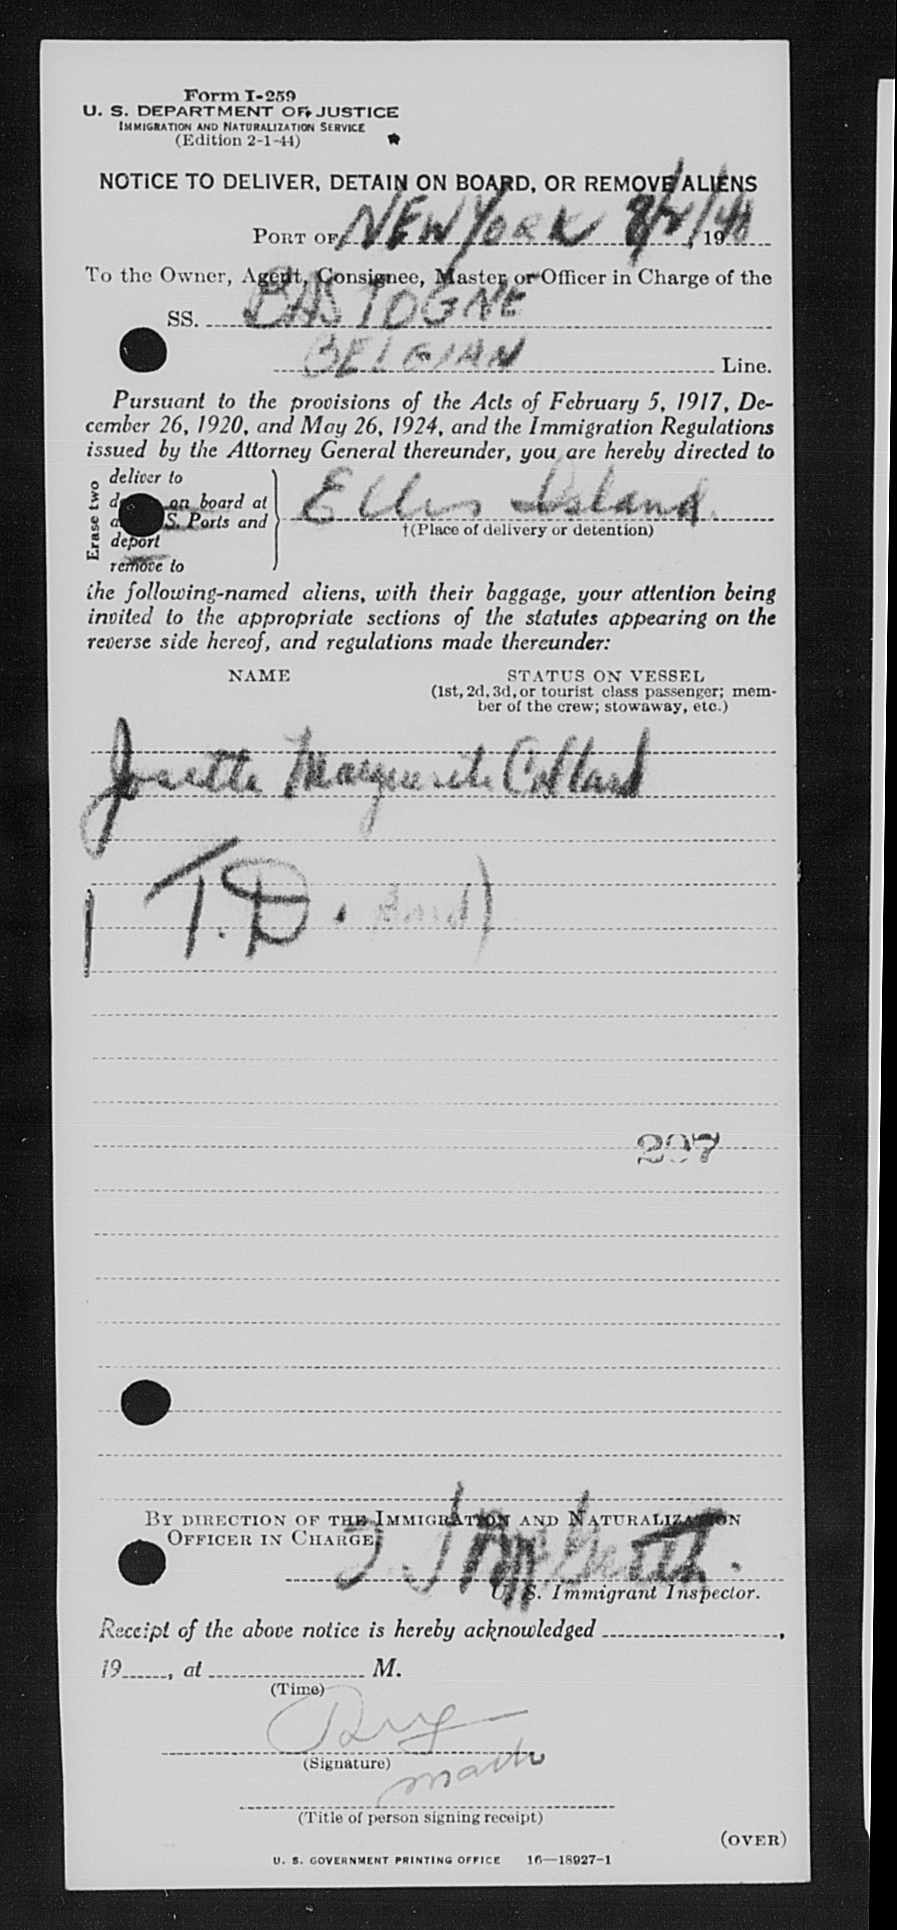 Form I-259
U. S. DEPARTMENT OF JUSTICE
IMMIGRATION AND NATURALIZATION SERVICE
(Edition 2-1-44)
NOTICE TO DELIVER, DETAIN ON BOARD, OR REMOVE ALIENS
PORT OF NEW YORK 8/2/48, 19
To the Owner, Agent, Consignee, Master or Officer in Charge of the
SS. BASTOGNE
BELGIAN Line.
Pursuant to the provisions of the Acts of February 5, 1917, De-
cember 26, 1920, and May 26, 1924, and the Immigration Regulations
issued by the Attorney General thereunder, you are hereby directed to
Erase two
deliver to
on board at
S. Ports and
deport
remove to
Ellis Island.
†(Place of delivery or detention)
the following-named aliens, with their baggage, your attention being
invited to the appropriate sections of the statutes appearing on the
reverse side hereof, and regulations made thereunder:
NAME STATUS ON VESSEL
(1st, 2d, 3d, or tourist class passenger; mem-
ber of the crew; stowaway, etc.)
Josette Marguerite Collard
T.D. Bond)
297
BY DIRECTION OF THE IMMIGRATION AND NATURALIZATION
OFFICER IN CHARGE
U. S. Immigrant Inspector.
Receipt of the above notice is hereby acknowledged ,
19 , at M.
(Time)
(Signature)
(Title of person signing receipt)
(OVER)
U. S. GOVERNMENT PRINTING OFFICE 16—18927-1